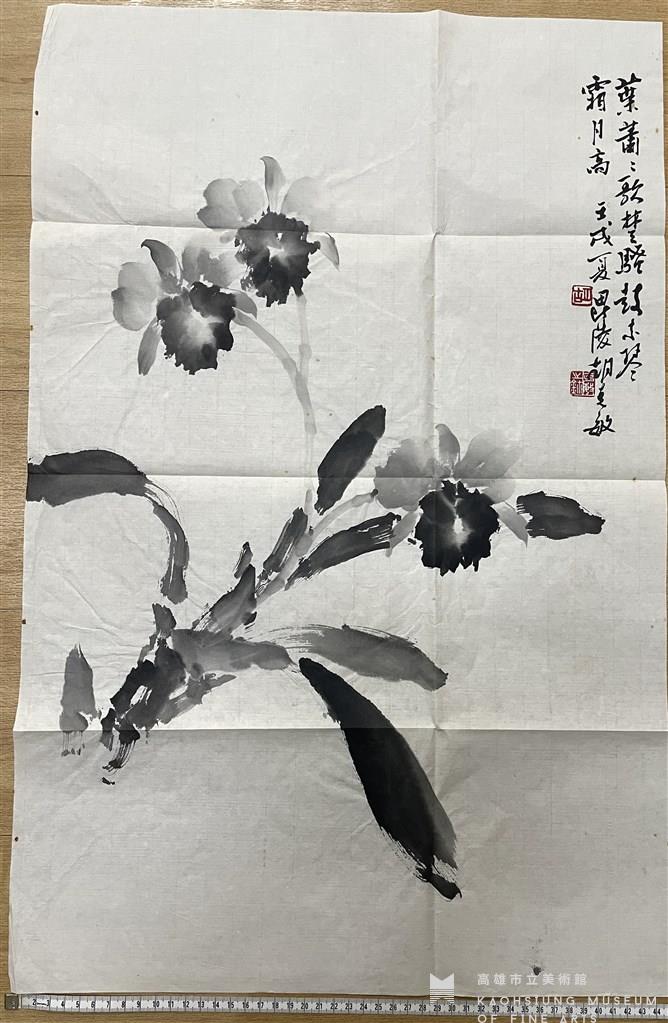 葉蕭〻歌楚騷鼓素琴
霜月高 壬戌夏毘陵胡克敏
高雄市立美術館
KAOHSIUNG MUSEUM
OF FINE ARTS